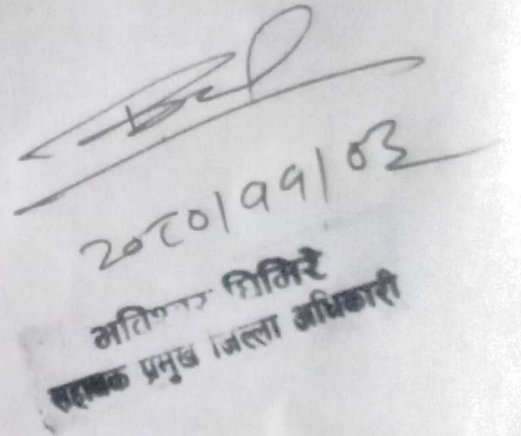 २०८०|११|०३
घिमिरे
सहायक प्रमुख जिल्ला अधिकारी